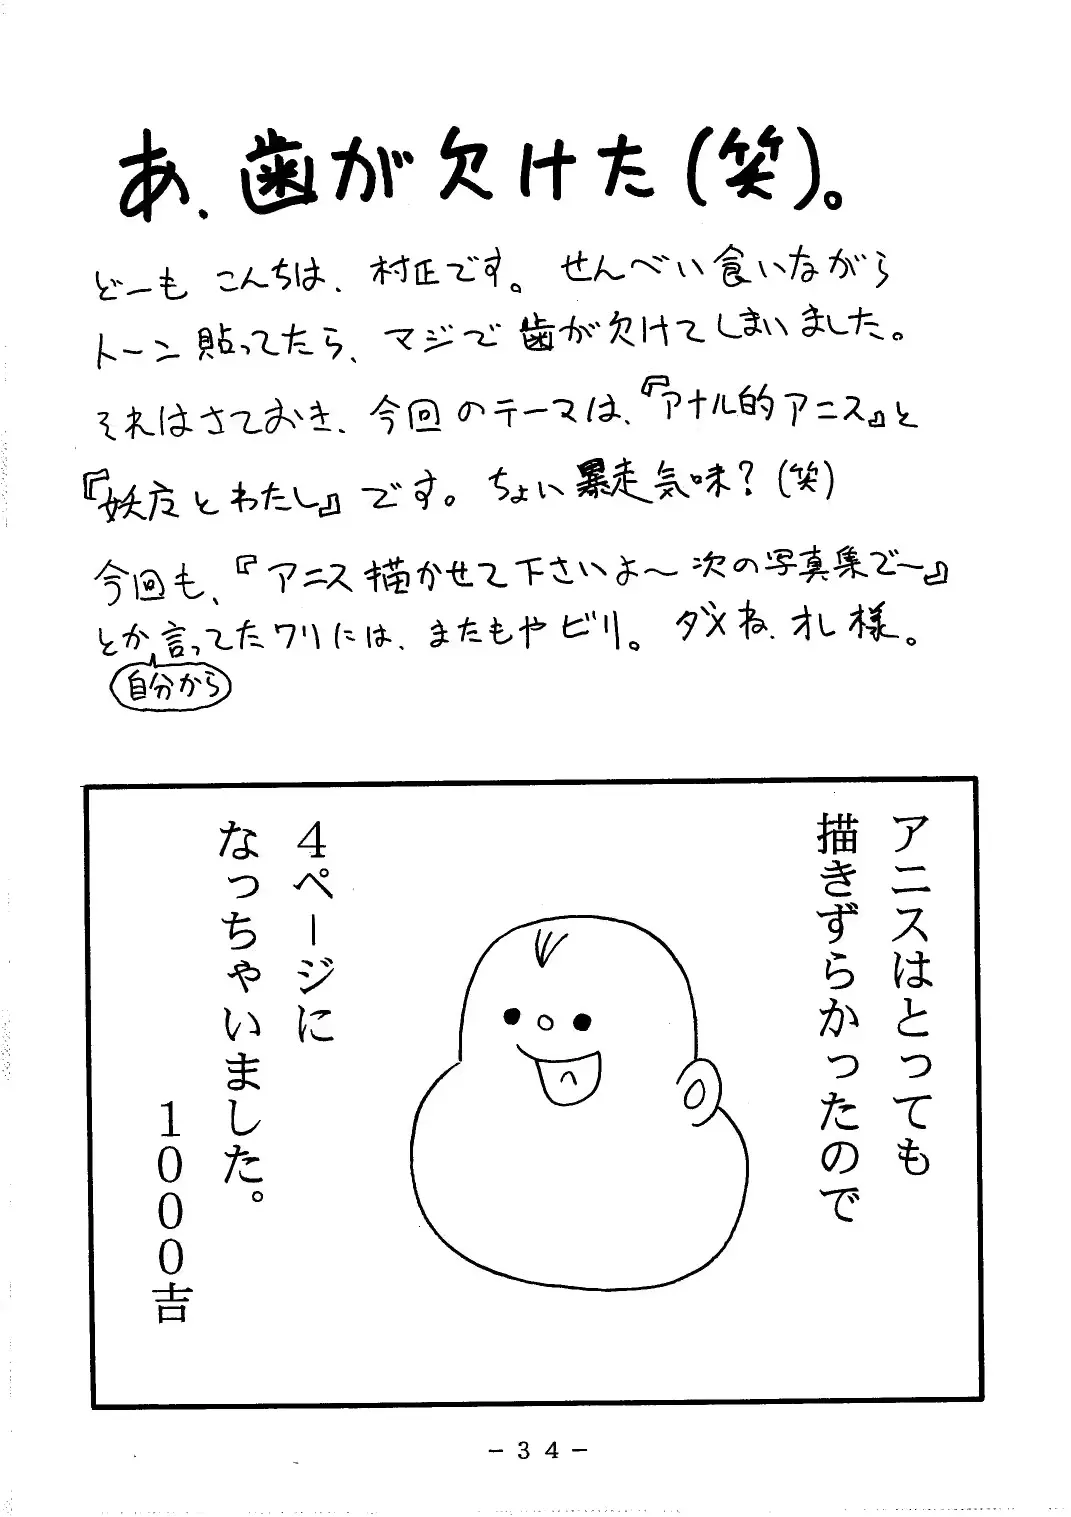 あ、歯が欠けた(笑)。
どーも こんちは、村正です。せんべい食いながら
トーン貼ってたら、マジで歯が欠けてしまいました。
それはさておき、今回のテーマは、『アナル的アニス』と
『妖夜とわたし』です。ちょい暴走気味?(笑)
今回も、『アニス描かせて下さいよ〜次の写真集で〜』
とか言ってたワリには、またもやビリ。ダメね、オレ様。
自分から
アニスはとっても
描きずらかったので
4ページに
なっちゃいました。
1000吉
-34-